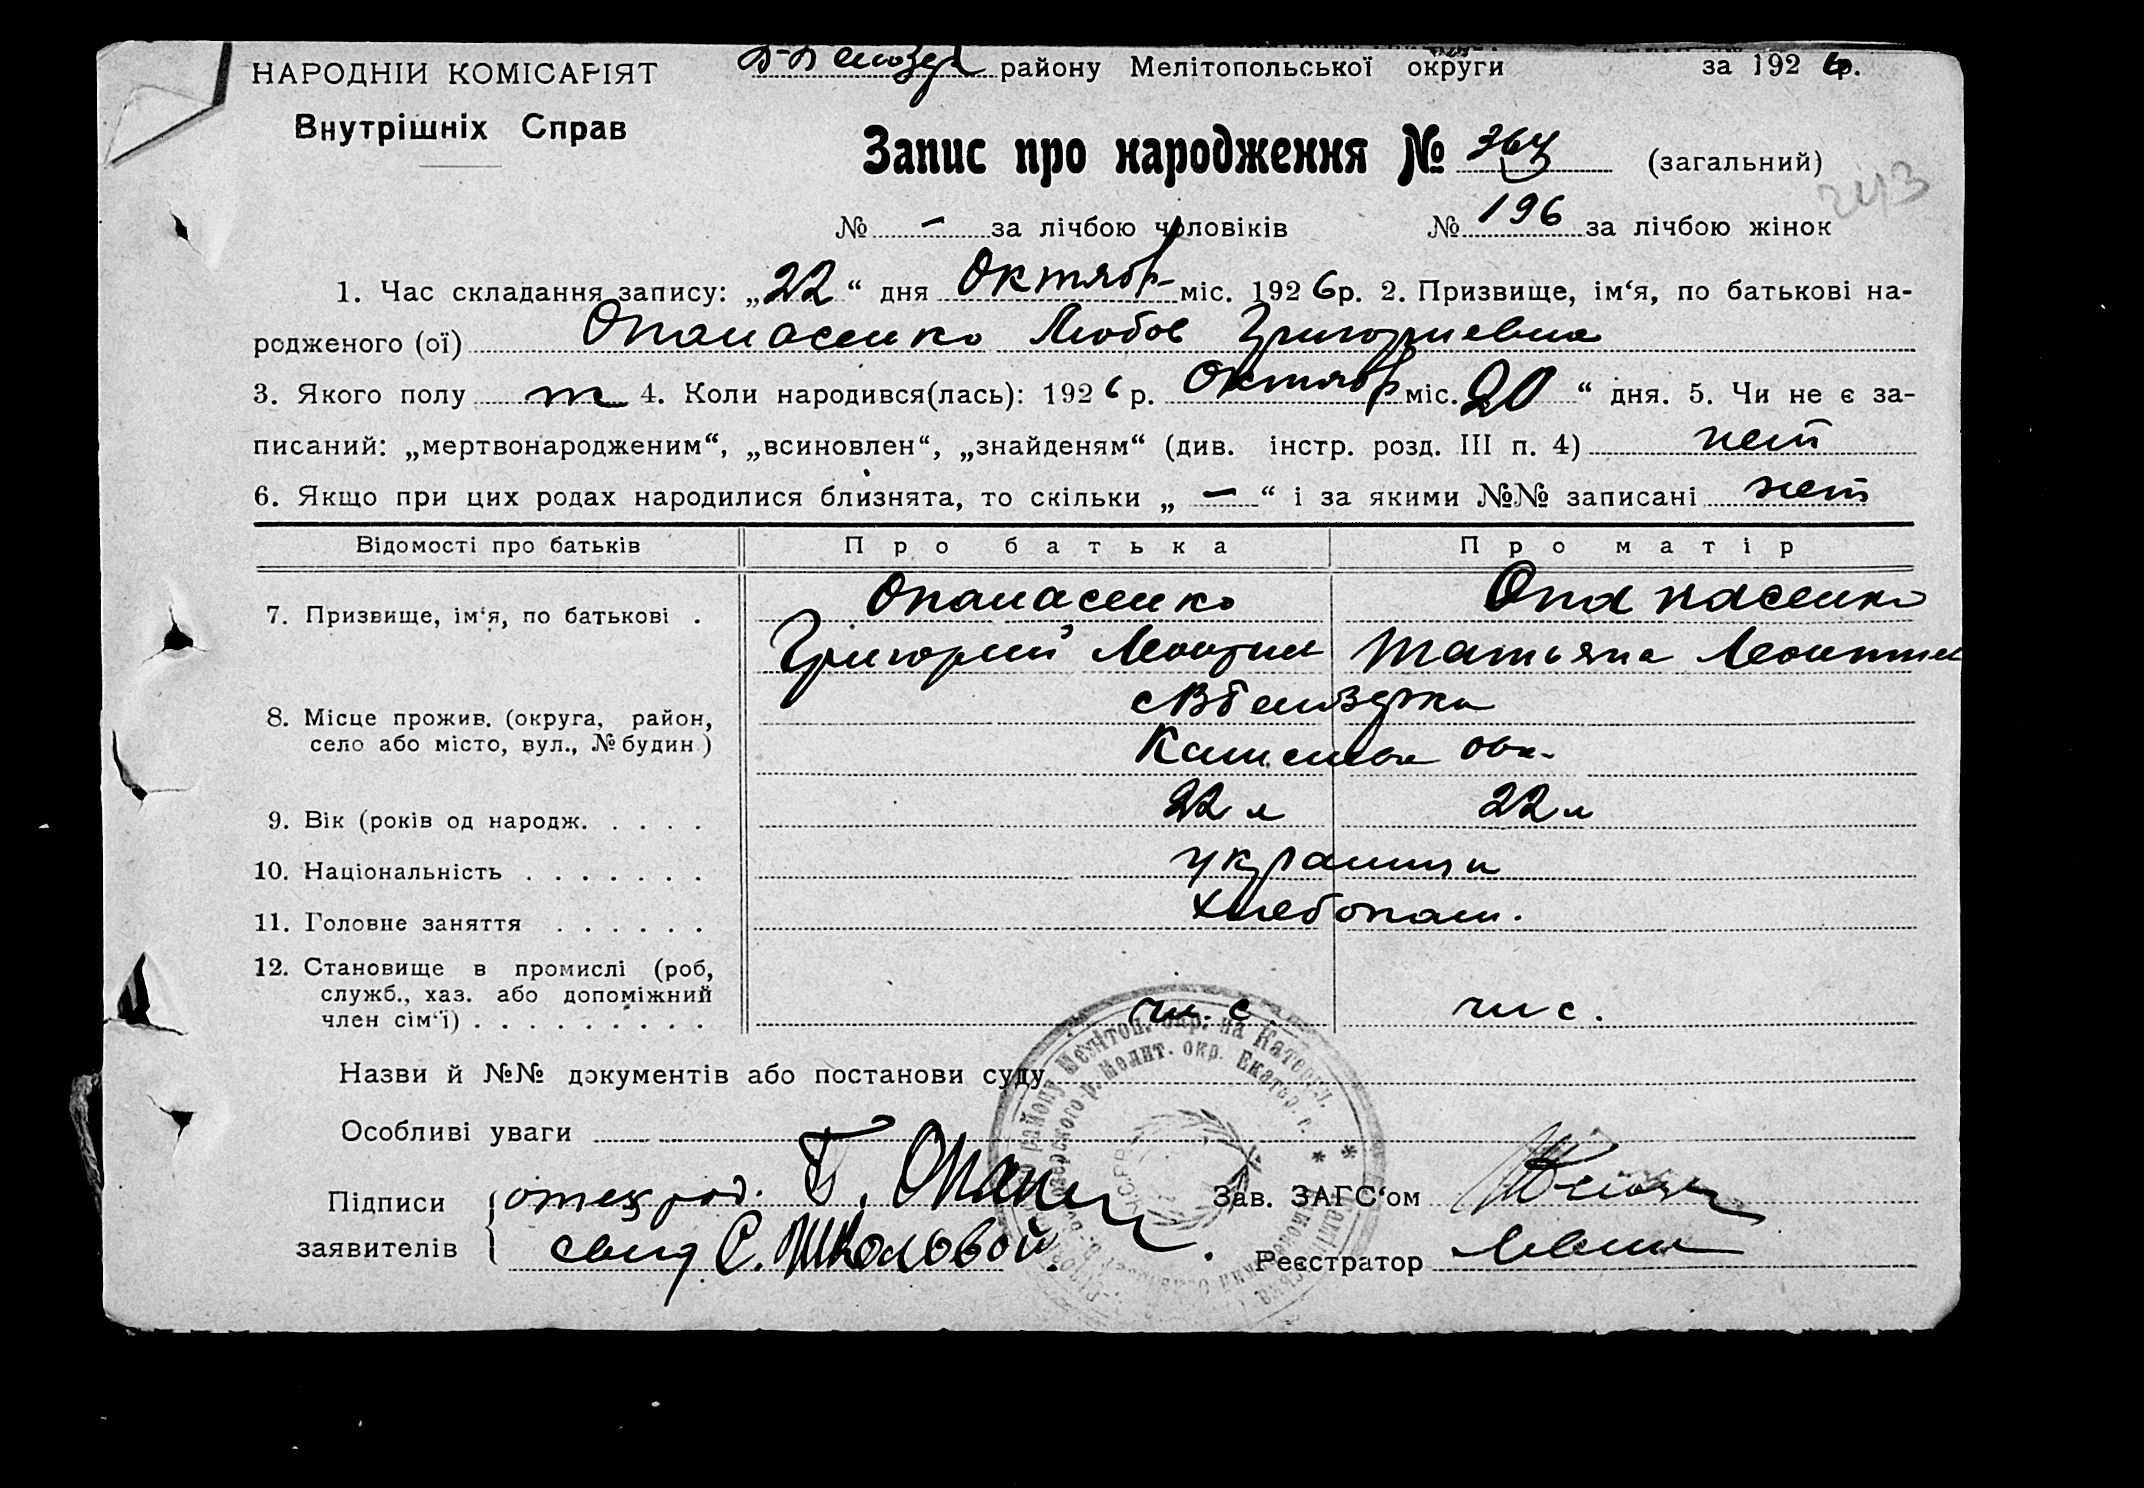 НАРОДНІЙ КОМІСАРІЯТ
Внутрішніх Справ
району Мелітопольської округи за 1926р.
Запис про народження № 364 (загальний)
243
№ - за лічбою чоловіків № 196 за лічбою жінок
1. Час складання запису: „22“ дня Октябр міс. 1926р. 2. Призвище, ім‘я, по батькові на-
родженого (ої) Опанасенко Любов Григориевна
3. Якого полу 4. Коли народився(лась): 1926р. Октябр міс. 20“ дня. 5. Чи не є за-
писаний: „мертвонародженим“, „всиновлен“, „знайденям“ (див. інстр. розд. III п. 4) нет
6. Якщо при цих родах народилися близнята, то скільки „ — “ і за якими №№ записані нет
Відомості про батьків Про батька Про матір
7. Призвище, ім‘я, по батькові . Опанасенко Опанасенко
Григорий Татьяна
8. Місце прожив. (округа, район,
село або місто, вул., № будин.)
9. Вік (років од народж. . . . . 22 л 22 л
10. Національність . . . . . . . украинци
11. Головне заняття . . . . . . хлебопаш.
12. Становище в промислі (роб,
служб., хаз. або допоміжний
член сім‘ї) . . . . . . . . .
Назви й №№ документів або постанови суду
Особливі уваги
Підписи отец Г. Зав. ЗАГС‘ом
заявителів С. Школовой. Реєстратор